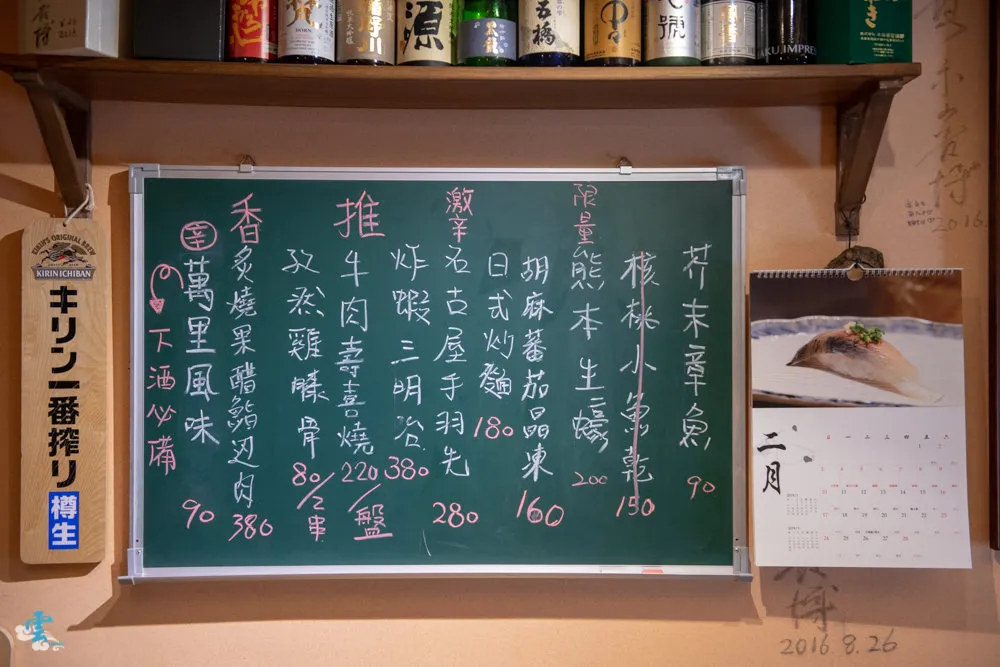 源
五橋
JAKU.IMPRES
2016.
限量
激辛
推
香
辛
芥末章魚
90
核桃小魚乾
150
熊本生蠔
200
胡麻蕃茄晶凍
160
日式炒麵
180
名古屋手羽先
280
炸蝦三明治
380
牛肉壽喜燒
220/盤
孜然雞膝骨
80/2串
炙燒果醋鮨边肉
380
萬里風味
90
下酒必備
KIRIN'S ORIGINAL BREW
KIRIN ICHIBAN
キリン一番搾り
樽生
二月
2016.8.26
雲